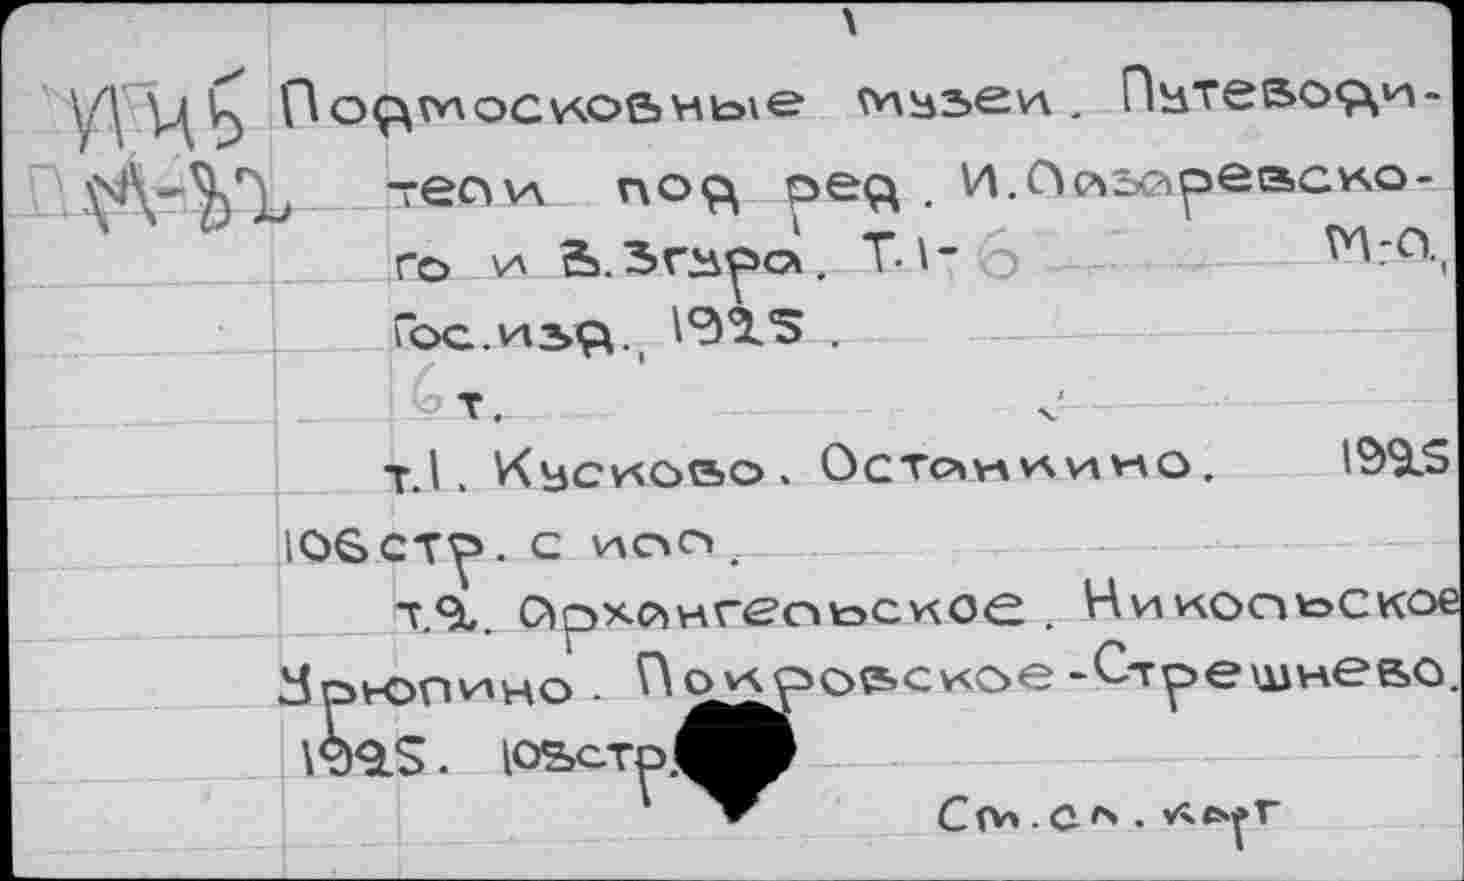 УЦБ Подмосковные музеи. Путеводи-
тели под ред. И.Лазаревско-
го и В.Згура. Т.1-6 М-Л.,
Гос.изд., 1925.
6 т.
т.1. Кусково. Останкино. 1925
106 стр. с илл.
т.2. Архангельское. Никольское
Урюпино. Покровское-Стрешнево.
1925. 103стр.
См.сл.карт